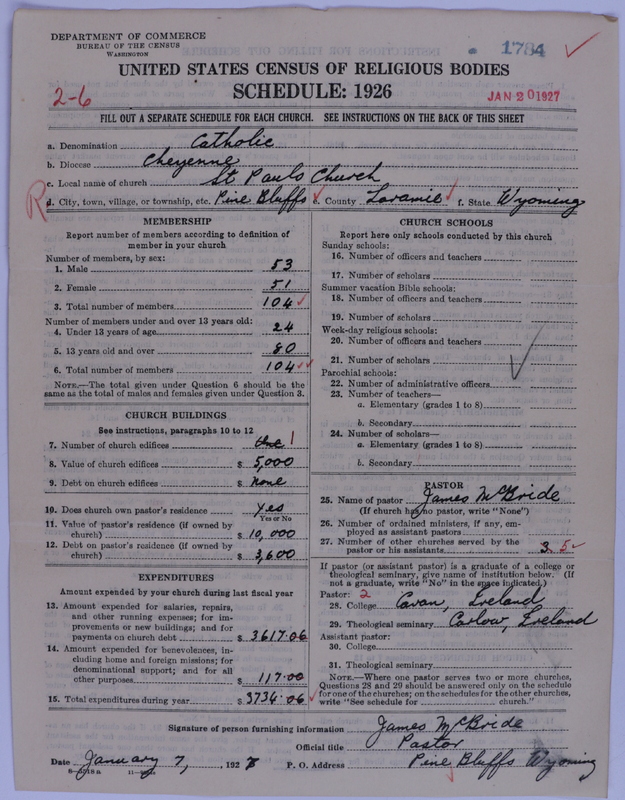 DEPARTMENT OF COMMERCE
BUREAU OF THE CENSUS
WASHINGTON
1784
UNITED STATES CENSUS OF RELIGIOUS BODIES
SCHEDULE: 1926
2-6
JAN 20 1927
FILL OUT A SEPARATE SCHEDULE FOR EACH CHURCH. SEE INSTRUCTIONS ON THE BACK OF THIS SHEET
a. Denomination Catholic
b. Diocese Cheyenne
c. Local name of church St Pauls Church
R
d. City, town, village, or township, etc. Pine Bluffs e. County Laramie f. State Wyoming
MEMBERSHIP
Report number of members according to definition of
member in your church
Number of members, by sex:
1. Male 53
2. Female 51
3. Total number of members 104
Number of members under and over 13 years old:
4. Under 13 years of age 24
5. 13 years old and over 80
6. Total number of members 104
NOTE.—The total given under Question 6 should be the
same as the total of males and females given under Question 3.
CHURCH BUILDINGS
See instructions, paragraphs 10 to 12
7. Number of church edifices one 1
8. Value of church edifices $ 5,000
9. Debt on church edifices $ none
10. Does church own pastor's residence Yes
Yes or No
11. Value of pastor's residence (if owned by
church) $ 10,000
12. Debt on pastor's residence (if owned by
church) $ 3,600
EXPENDITURES
Amount expended by your church during last fiscal year
13. Amount expended for salaries, repairs,
and other running expenses; for im-
provements or new buildings; and for
payments on church debt $ 3617.06
14. Amount expended for benevolences, in-
cluding home and foreign missions; for
denominational support; and for all
other purposes $ 117.00
15. Total expenditures during year $ 3734.06
CHURCH SCHOOLS
Report here only schools conducted by this church
Sunday schools:
16. Number of officers and teachers
17. Number of scholars
Summer vacation Bible schools:
18. Number of officers and teachers
19. Number of scholars
Week-day religious schools:
20. Number of officers and teachers
21. Number of scholars
Parochial schools:
22. Number of administrative officers
23. Number of teachers—
a. Elementary (grades 1 to 8)
b. Secondary
24. Number of scholars—
a. Elementary (grades 1 to 8)
b. Secondary
PASTOR
25. Name of pastor James McBride
(If church has no pastor, write "None")
26. Number of ordained ministers, if any, em-
ployed as assistant pastors
27. Number of other churches served by the
pastor or his assistants 3 5
If pastor (or assistant pastor) is a graduate of a college or
theological seminary, give name of institution below. (If
not a graduate, write "No" in the space indicated.)
Pastor: 2
28. College Cavan, Ireland
29. Theological seminary Carlow, Ireland
Assistant pastor:
30. College
31. Theological seminary
NOTE.—Where one pastor serves two or more churches,
Questions 28 and 29 should be answered only on the schedule
for one of the churches; on the schedules for the other churches,
write "See schedule for church."
Signature of person furnishing information James McBride
Official title Pastor
Date January 7, 1927 P. O. Address Pine Bluffs Wyoming